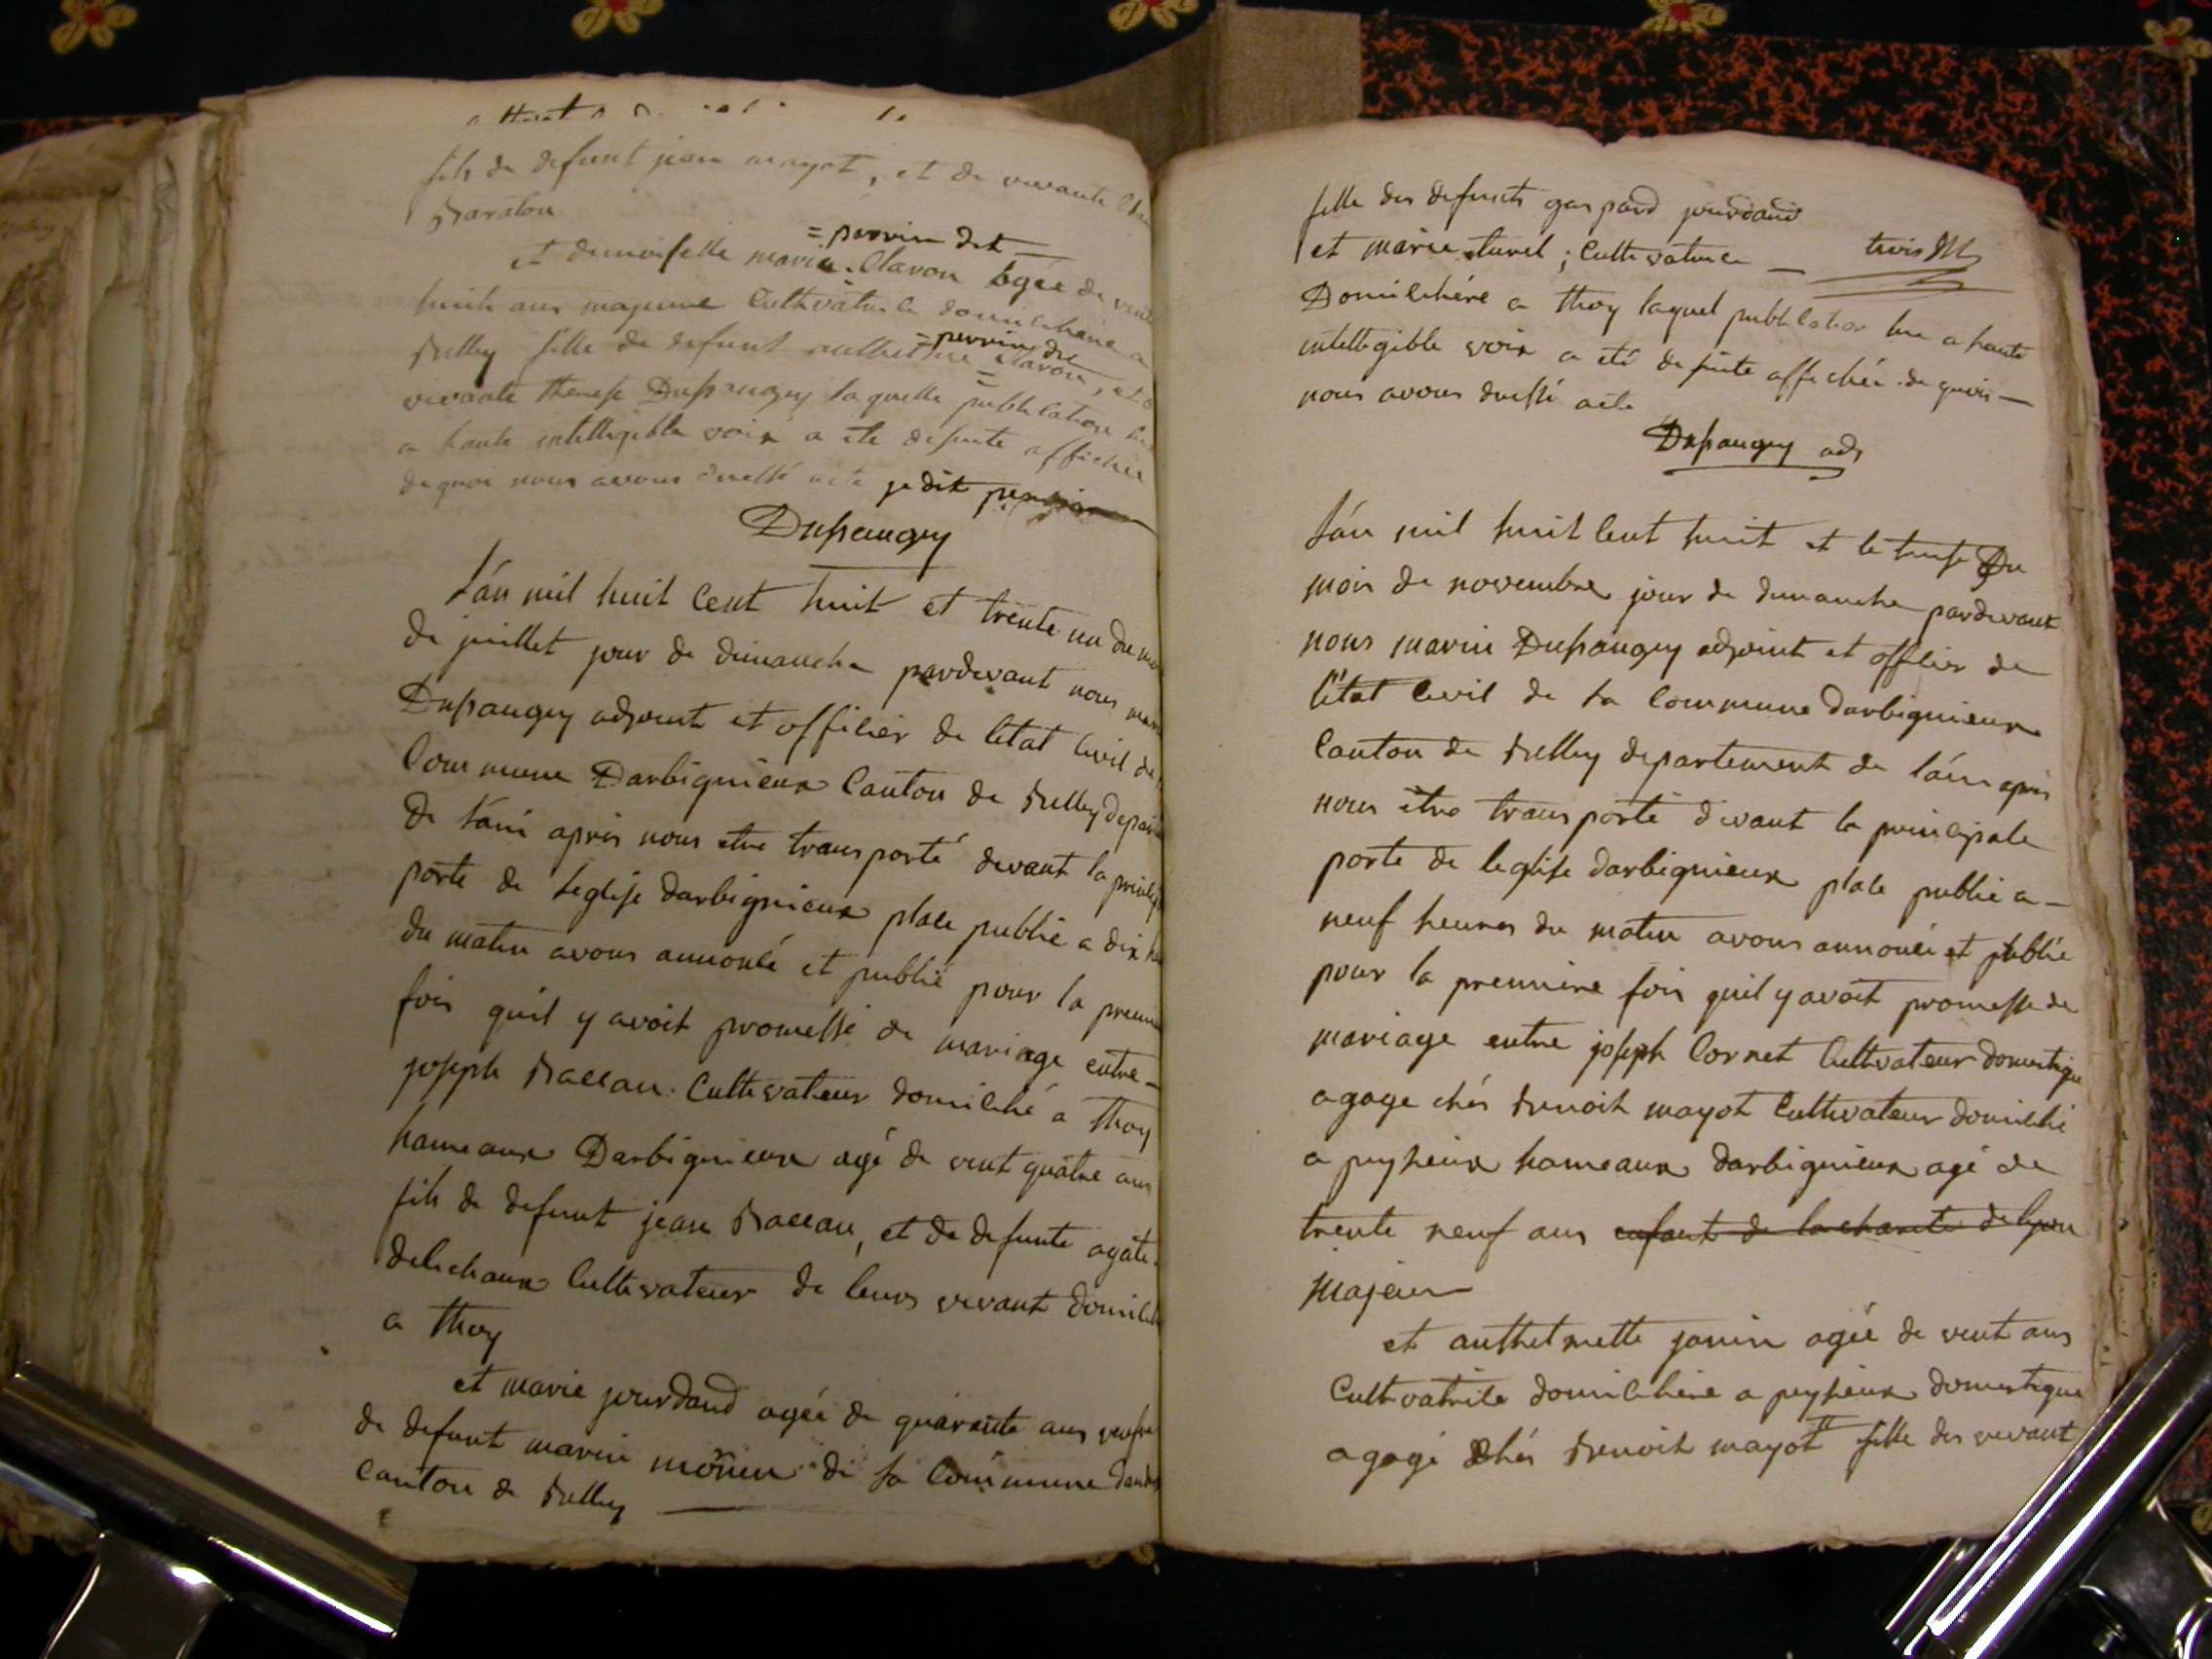 fils de defunt jean mayot, et de vivante
Baraton
= perrin dit
et demoiselle marie Clavon agée de vint
huit ans majeure Cultivatrice domicilhiere a
= perrin dit
Belley fille de defunt anthelme Clavon, et
vivante therese Dupraugey laquelle publication
a haute intelligible voix a ete desuite affichée
de quoi nous avons dressé acte je dit perrin
Dupraugey
L'án mil huit Cent huit et trente un du
de juillet jour de dimanche pardevant nous
Dupraugey adjoint et officier de letat Civil de
Commune Darbignieux Canton de Belley
de láin apres nous etre transporté devant la
porte de leglise darbignieux place public a dix
du matin avons annoncé et publié pour la
fois quil y avoit promesse de mariage entre
joseph Baccau Cultivateur domicilié a Thoy
hameaux Darbignieux agé de vint quatre ans
fils de defunt jean Baccau, et de defunte agate
delechaux Cultivateur de leurs vivant
a Thoy
et marie jourdand agée de quarante ans
de defunt marin monin de la Commune
canton de Belley
fille des defunts gaspard jourdand
et marie turel ; Cultivatrice trois M
Domicilhére a thoy laquel publication lue a haute
intelligible voix a eté de suite affichée de quoi
nous avons dressé acte
Dupraugey adj
L'án mil huit Cent huit et le treise Du
mois de novembre jour de dimanche pardevant
nous marin Dupraugey adjoint et officier de
létat Civil de la Commune darbignieux
Canton de Belley departement de láin apres
nous être transporté devant la principale
porte de leglise darbignieux place public a
neuf heures du matin avons annoncé et publié
pour la premiere fois quil y avoit promesse de
mariage entre joseph Cornet Cultivateur domestique
a gage chés Benoit mayot Cultivateur domicilié
a peyzieux hameaux darbignieux agé de
trente neuf ans enfant de la charité de lyon
Majeur
et anthelmette janin agée de vint ans
Cultivatrice domicilhere a peyzieux domestique
a gage Chés Benoit mayot fille des vivant